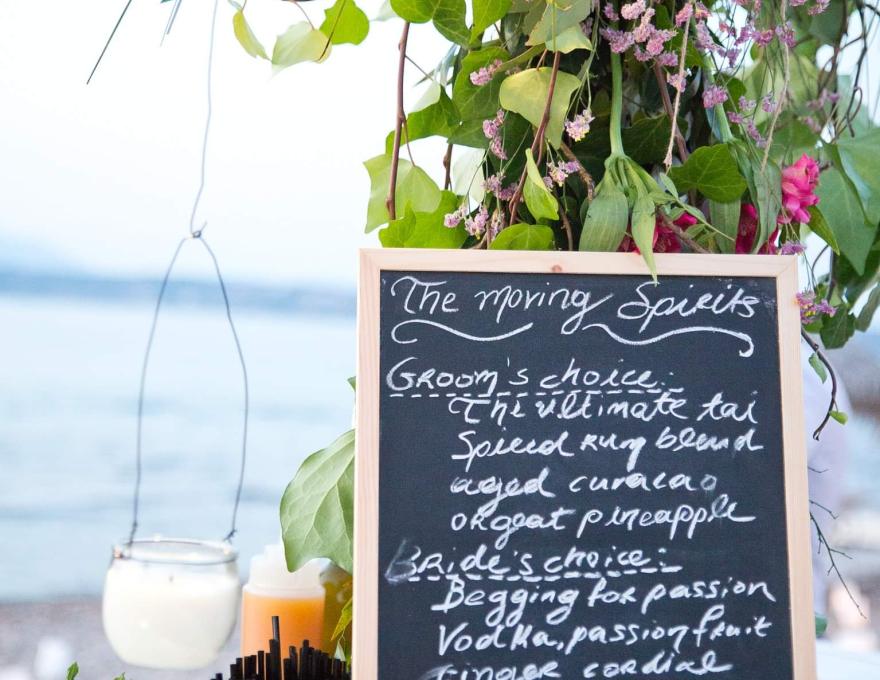 The moving Spirits
Groom's choice:
The ultimate tai
Spiced Rum blend
aged curacao
orgeat pineapple
Bride's choice:
Begging for passion
Vodka, passion fruit
Ginger cordial